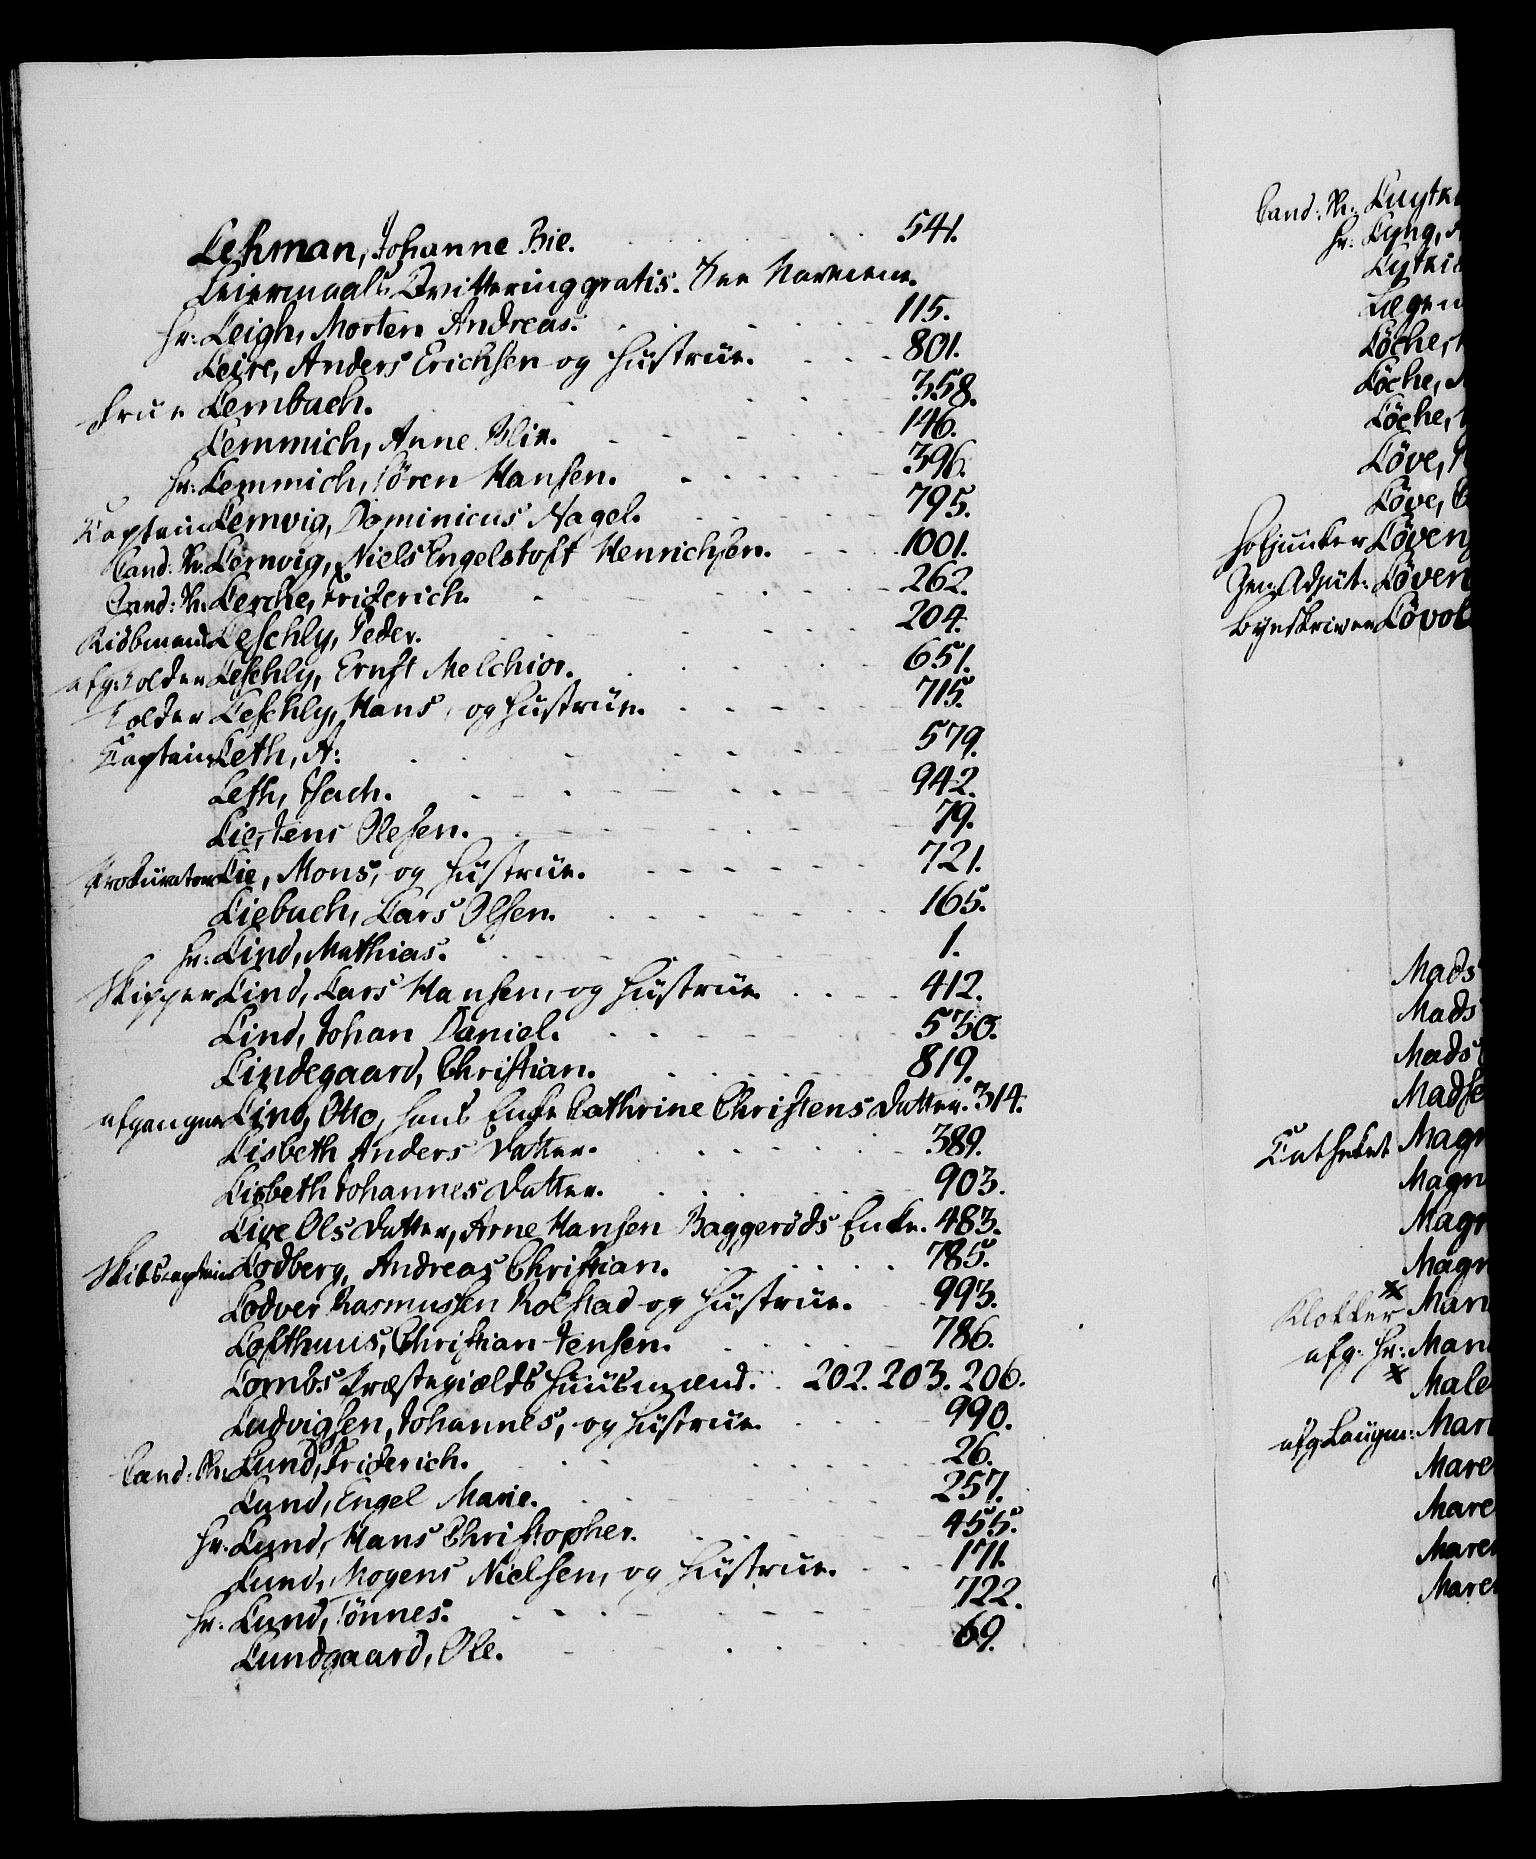 Lehman, Johanne Bie. 541.
Leiermaals Qvittering gratis. See Navnene.
Hr: Leigh, Morten Andreas. 115.
Leire, Anders Erichsen og Hustrue. 801.
Frue Lembach. 358.
Lemmich, Anne Blix. 146.
Hr: Lemmich, Sören Hansen. 396.
Captain Lemvig, Dominicus Nagel. 795.
Cand: Ph: Lemvig, Niels Engelstoft Henrichsen. 1001.
Cand: Ph: Lerche, Friderich. 262.
Kiöbmand Leschly, Peder. 204.
afg: Tolder Leschly, Ernst Melchior. 651.
Tolder Leschly, Hans, og Hustrue. 715.
Captain Leth, A: 579.
Leth, Isach. 942.
Lie, Jens Olesen. 79.
Prokurator Lie, Mons, og Hustrue. 721.
Liebach, Lars Olsen. 165.
Hr: Lind, Mathias. 1.
Skipper Lind, Lars Hansen, og Hustrue 412.
Lind, Johan Daniel. 530.
Lindegaard, Christian. 819.
afgangne Lind, Otto, hans Enke Cathrine Christens Datter. 314.
Lisbeth Anders Datter. 389.
Lisbeth Johannes Datter. 903.
Live Ols Datter, Arne Hansen Baggeröds Enke. 483.
Skibscaptain Lodberg, Andreas Christian. 785.
Lodver Rasmussen Rolstad og Hustrue. 993.
Lofthuus, Christian Jensen. 786.
Lombs Præstegiælds Huusmænd. 202. 203. 206.
Ludvigsen, Johannes, og Hustrue 990.
Cand: Ph: Lund, Friderich. 26.
Lund, Engel Marie. 257.
Hr: Lund, Hans Christopher. 455.
Lund, Mogens Nielsen, og Hustrue. 171.
Hr: Lund, Tönnes. 722.
Lundgaard, Ole. 69.
Cand: Ph:
Hr: Lyng,
Löche,
Löche,
Löche,
Löve,
Löve,
Hofjunker Löven
Gen: Adjut: Löven
Byeskriver Lövol
Mads
Mads
Mads
Madse
Catheket Magn
Magn
Magn
Magn
Klokker Man
afg: Hr: Man
Male
afg: Laugm: Mar
Mare
Mare
Mare
Mare